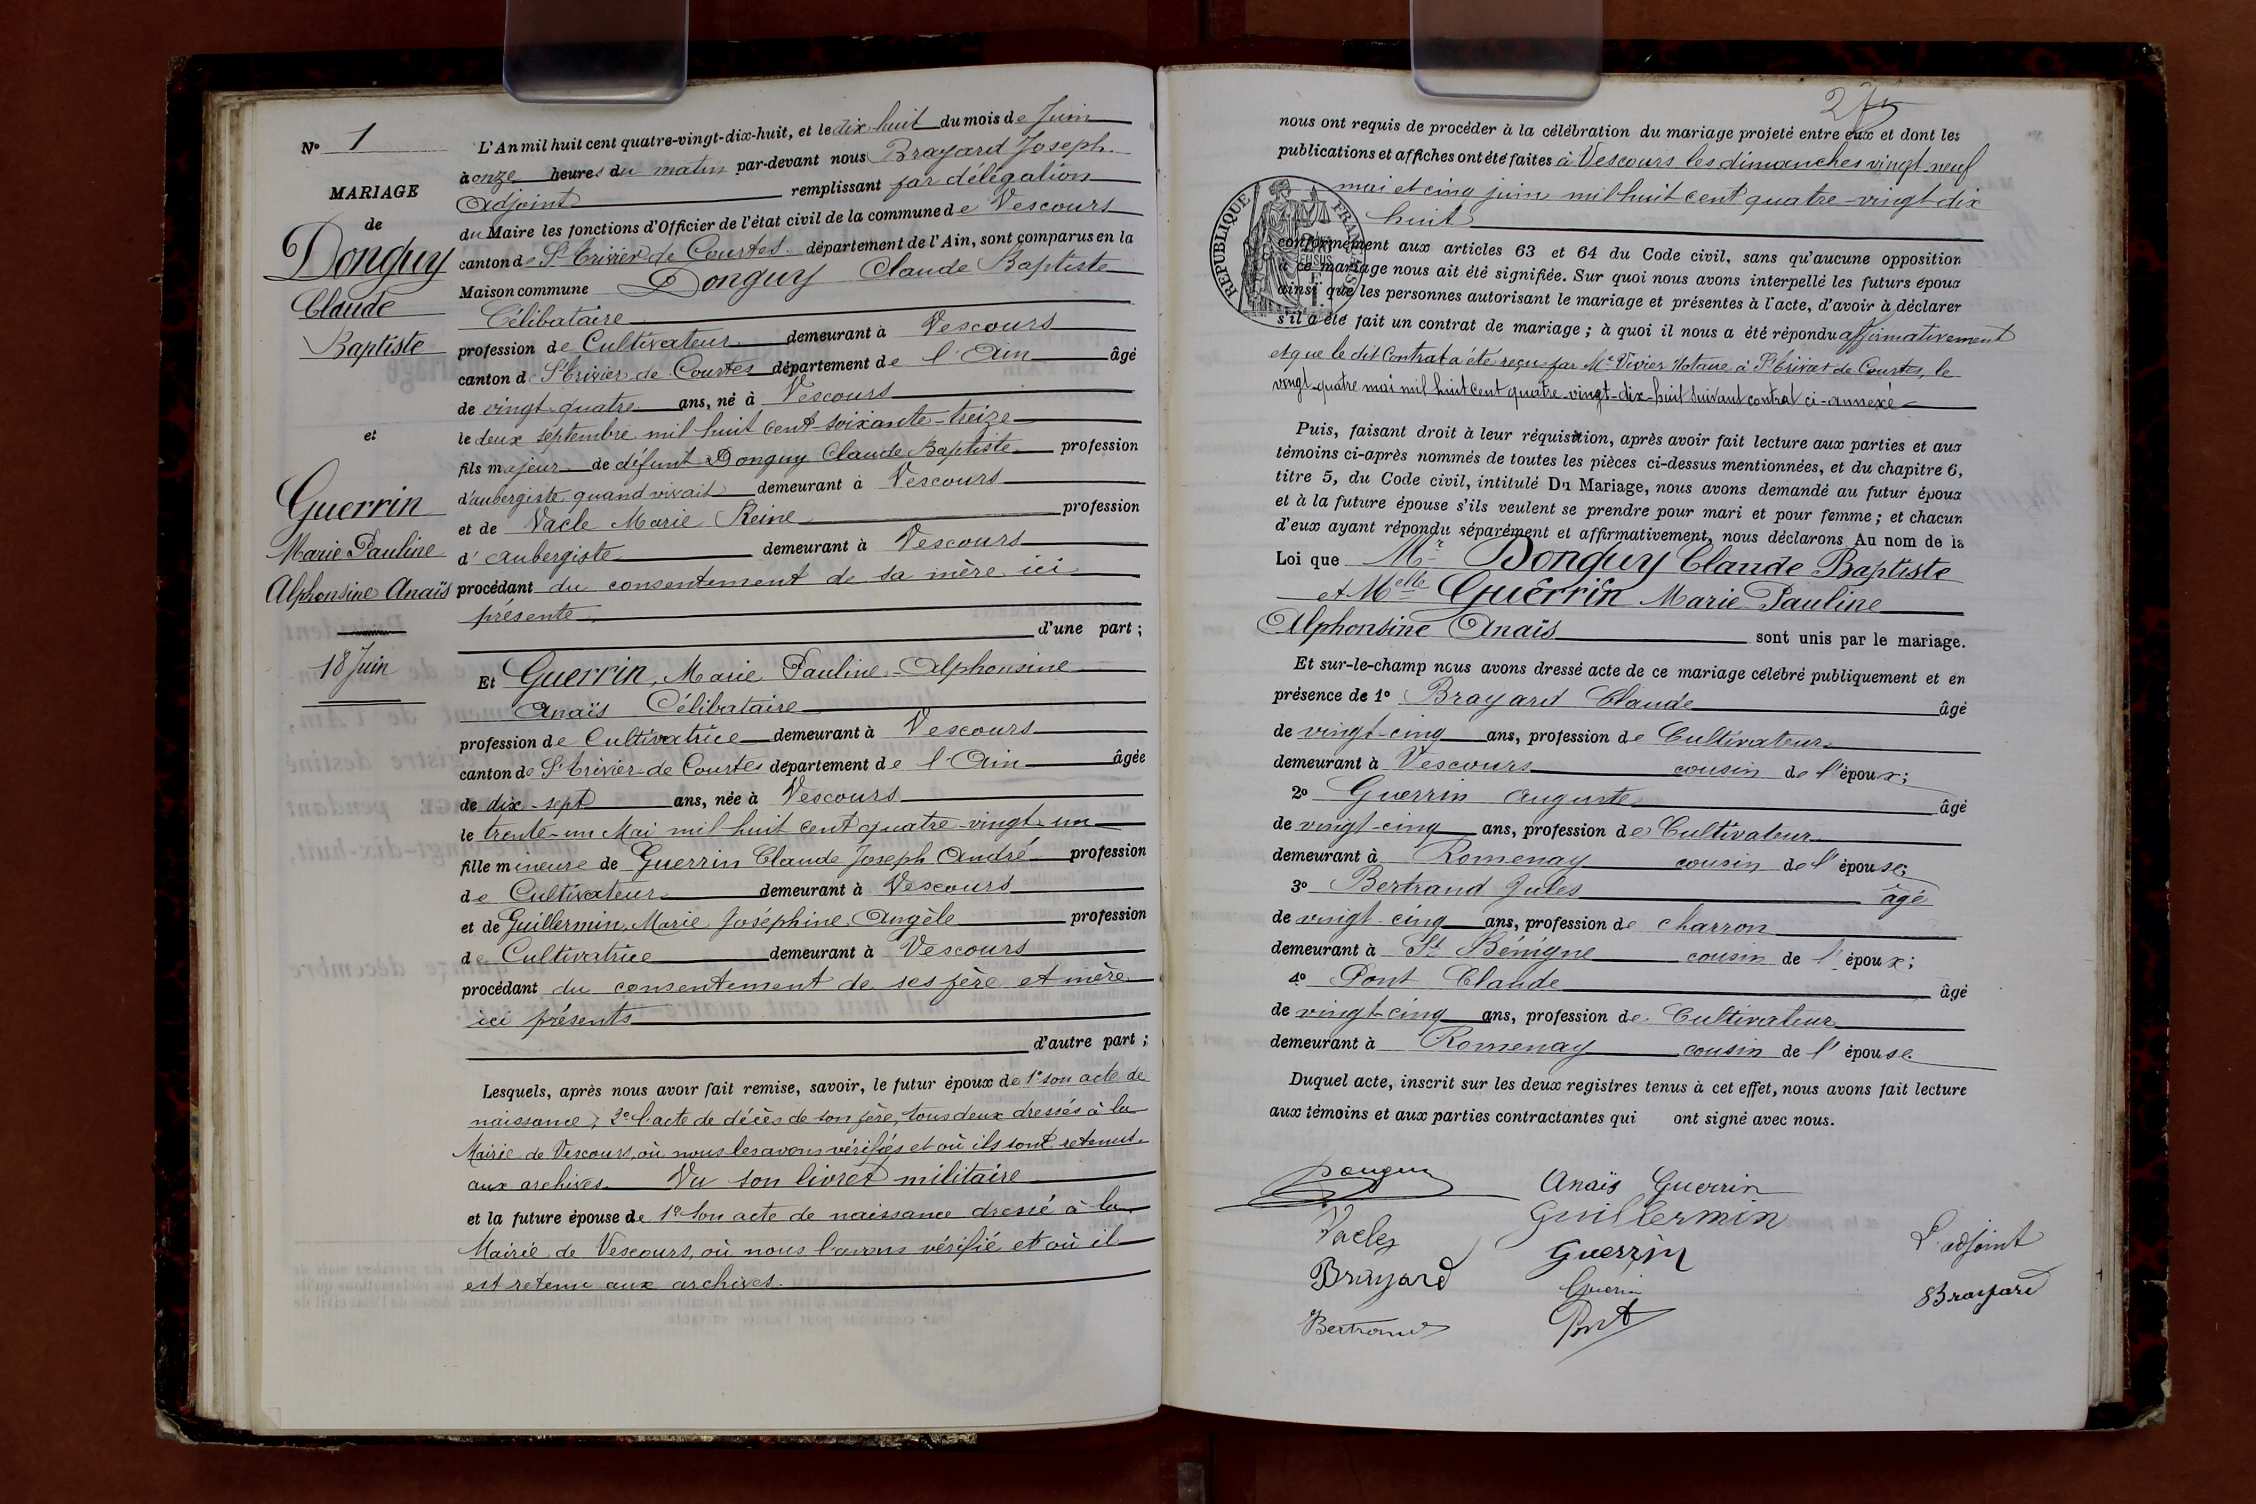 Nº 1
MARIAGE
de
Donguy
Claude
Baptiste
et
Guerrin
Marie Pauline
Alphonsine Anaïs
18 Juin
L'An mil huit cent quatre-vingt-dix-huit, et le dix huit du mois de Juin
à onze heures du matin par-devant nous Brayard Joseph
Adjoint remplissant par délégation
du Maire les fonctions d'Officier de l'état civil de la commune de Vescours
canton de St Trivier de Courtes département de l'Ain, sont comparus en la
Maison commune Donguy Claude Baptiste
Célibataire
profession de Cultivateur demeurant à Vescours
canton de St Trivier de Courtes département de l'Ain âgé
de vingt-quatre ans, né à Vescours
le deux septembre mil huit cent soixante-treize
fils majeur de défunt Donguy Claude Baptiste profession
d'aubergiste quand vivait demeurant à Vescours
et de Vacle Marie Reine profession
d'aubergiste demeurant à Vescours
procédant du consentement de sa mère ici
présente
d'une part ;
Et Guerrin, Marie Pauline Alphonsine
Anaïs Célibataire
profession de Cultivatrice demeurant à Vescours
canton de St Trivier de Courtes département de l'Ain âgée
de dix-sept ans, née à Vescours
le trente-un Mai mil huit cent quatre-vingt-un
fille mineure de Guerrin Claude Joseph André profession
de Cultivateur demeurant à Vescours
et de Guillermin, Marie Joséphine Angèle profession
de Cultivatrice demeurant à Vescours
procédant du consentement de ses père et mère
ici présents
d'autre part ;
Lesquels, après nous avoir fait remise, savoir, le futur époux de 1º son acte de
naissance ; 2º l'acte de décès de son père, tous deux dressés à la
Mairie de Vescours, où nous les avons vérifiés et où ils sont retenus
aux archives. Vu son livret militaire
et la future épouse de 1º Son acte de naissance dressé à la
Mairie de Vescours, où nous l'avons vérifié et où il
est retenu aux archives.
275
nous ont requis de procéder à la célébration du mariage projeté entre eux et dont les
publications et affiches ont été faites à Vescours les dimanches vingt neuf
mai et cinq juin mil huit cent quatre-vingt-dix
huit
RÉPUBLIQUE FRANÇAISE
conformément aux articles 63 et 64 du Code civil, sans qu'aucune opposition
à ce mariage nous ait été signifiée. Sur quoi nous avons interpellé les futurs époux
ainsi que les personnes autorisant le mariage et présentes à l'acte, d'avoir à déclarer
s'il a été fait un contrat de mariage ; à quoi il nous a été répondu affirmativement
et que le dit Contrat a été reçu par Me Vivier Notaire à St Trivier de Courtes, le
vingt-quatre mai mil huit cent quatre-vingt-dix-huit suivant contrat ci-annexé
Puis, faisant droit à leur réquisition, après avoir fait lecture aux parties et aux
témoins ci-après nommés de toutes les pièces ci-dessus mentionnées, et du chapitre 6,
titre 5, du Code civil, intitulé Du Mariage, nous avons demandé au futur époux
et à la future épouse s'ils veulent se prendre pour mari et pour femme ; et chacun
d'eux ayant répondu séparément et affirmativement, nous déclarons Au nom de la
Loi que Mr Donguy Claude Baptiste
et Melle Guerrin Marie Pauline
Alphonsine Anaïs sont unis par le mariage.
Et sur-le-champ nous avons dressé acte de ce mariage célébré publiquement et en
présence de 1º Brayard Claude âgé
de vingt-cinq ans, profession de Cultivateur
demeurant à Vescours cousin de l'époux ;
2º Guerrin Auguste âgé
de vingt-cinq ans, profession de Cultivateur
demeurant à Romenay cousin de l'épouse ;
3º Bertrand Jules âgé
de vingt-cinq ans, profession de charron
demeurant à St Bénigne cousin de l'époux ;
4º Pont Claude âgé
de vingt-cinq ans, profession de Cultivateur
demeurant à Romenay cousin de l'épouse
Duquel acte, inscrit sur les deux registres tenus à cet effet, nous avons fait lecture
aux témoins et aux parties contractantes qui ont signé avec nous.
Donguy Anaïs Guerrin
Vacle Guillermin
Brayard Guerrin L'adjoint
Guerin Brayard
Bertrand Pont